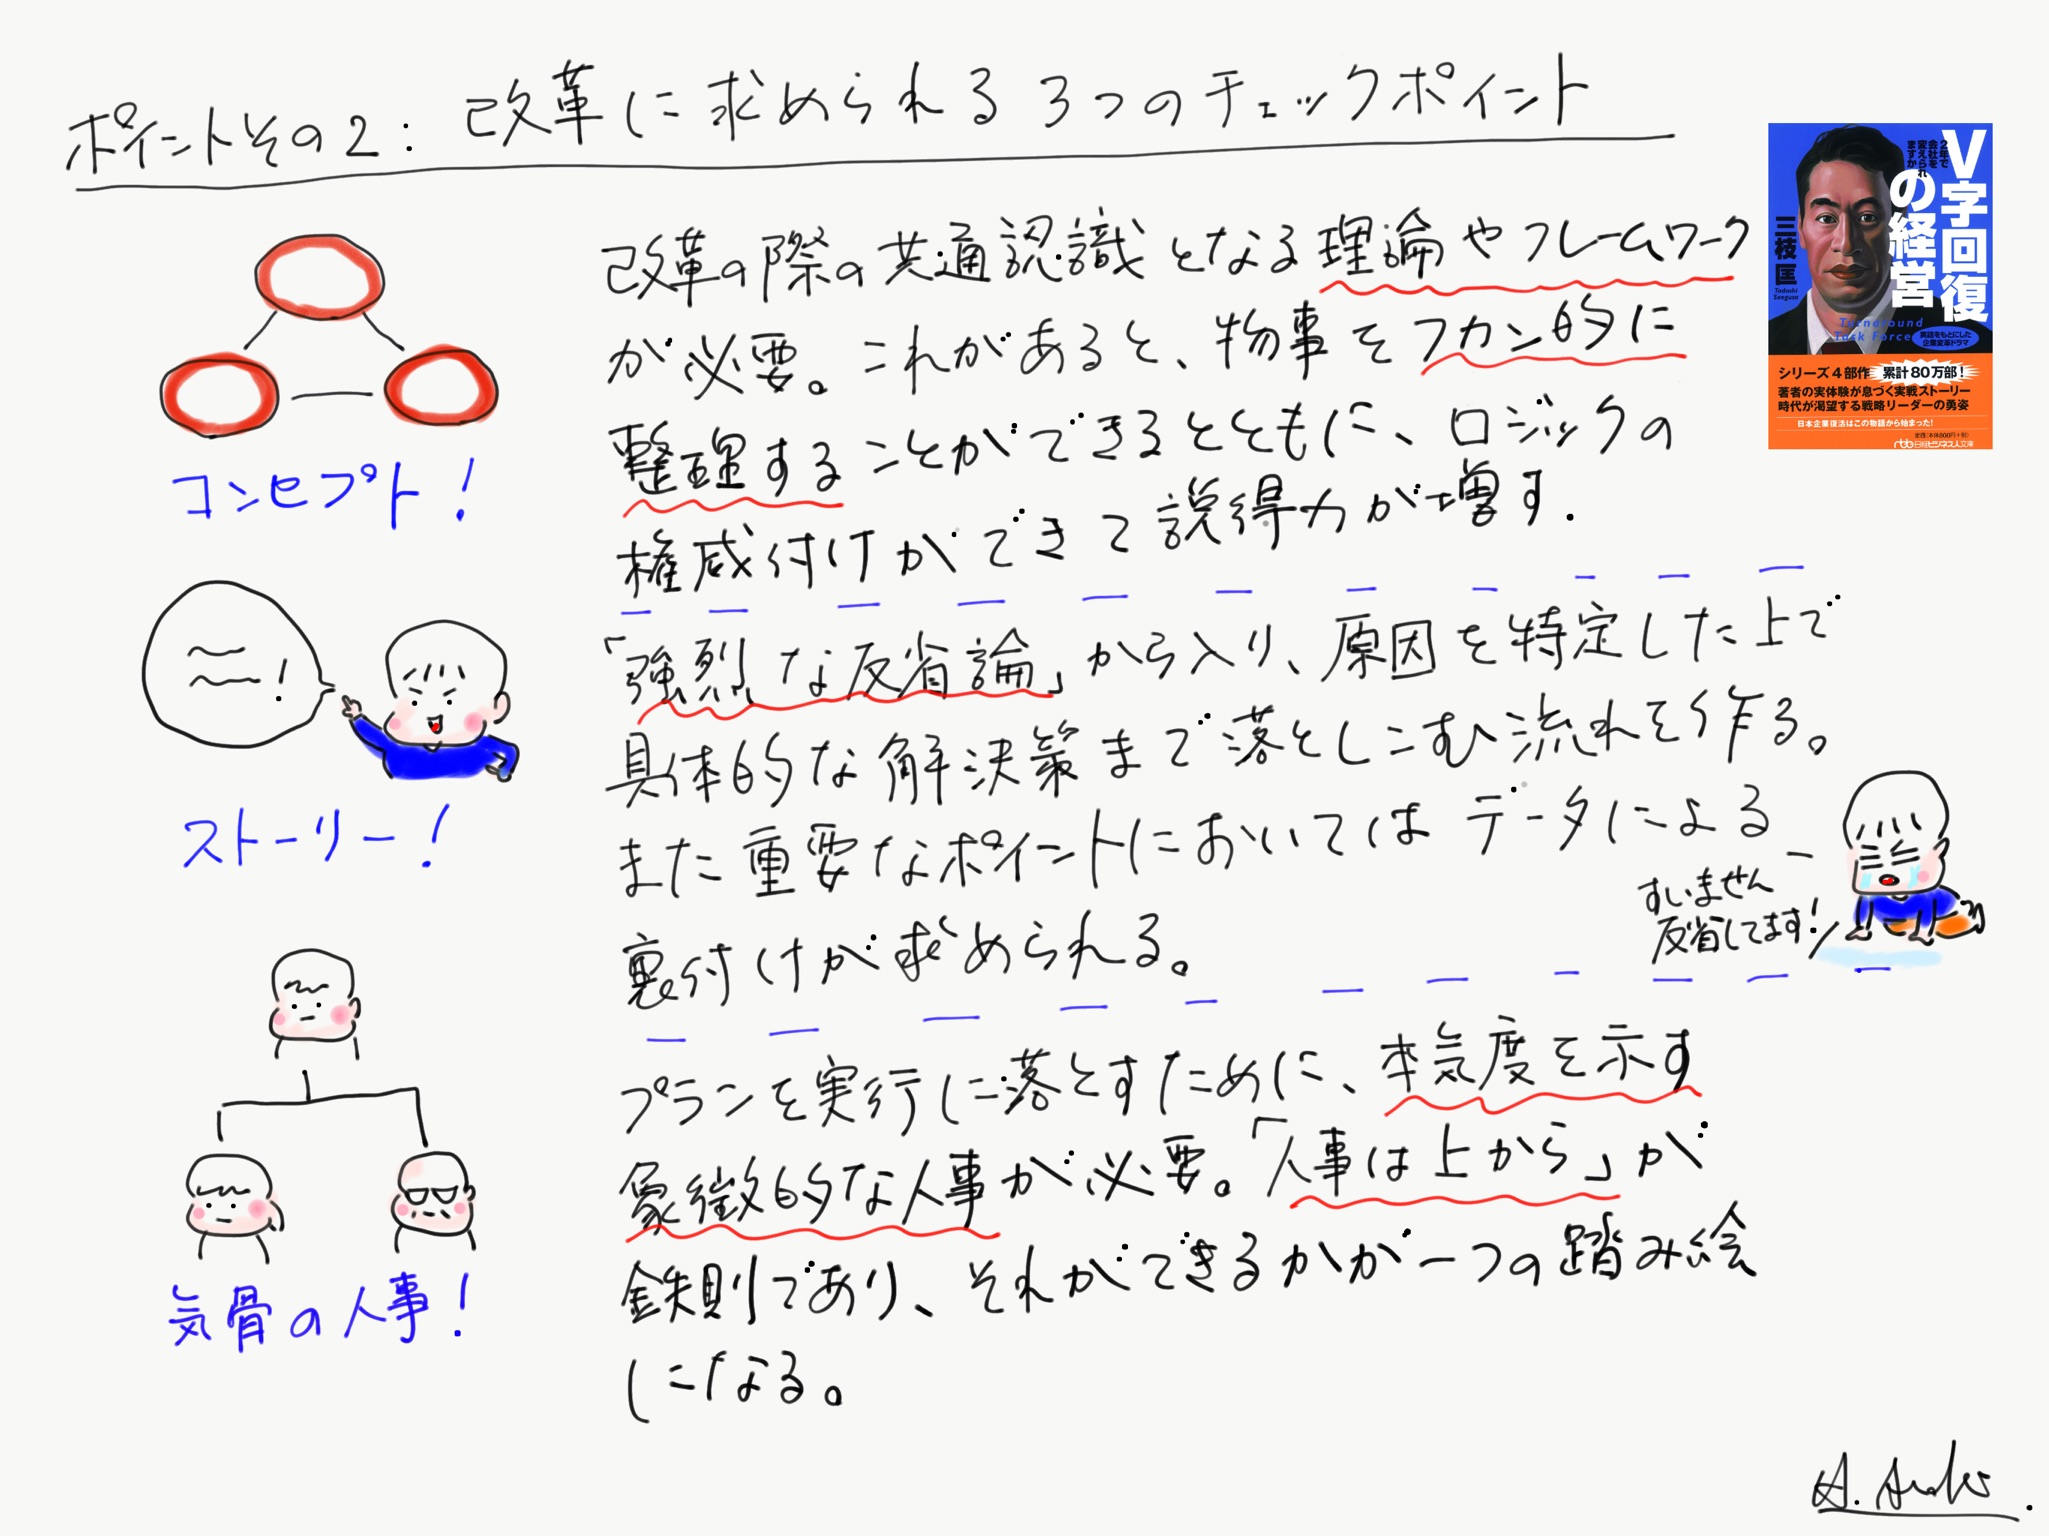 ポイントその2: 改革に求められる3つのチェックポイント
コンセプト!
改革の際の共通認識となる理論やフレームワーク
が必要。これがあると、物事をフカン的に
整理することができるとともに、ロジックの
権威付けができて説得力が増す.
ストーリー!
「強烈な反省論」から入り、原因を特定した上で
具体的な解決策まで落としこむ流れを作る。
また重要なポイントにおいてはデータによる
裏付けが求められる。
すいません
反省してます!
気骨の人事!
プランを実行に落とすために、本気度を示す
象徴的な人事が必要。「人事は上から」が
鉄則であり、それができるかが一つの踏み絵
になる。
V字回復
の経営
2年で
会社を
変えられ
ますか
三枝 匡
Tadashi
Saegusa
Turnaround
Task Force
実話をもとにした
企業変革ドラマ
シリーズ4部作 累計80万部!
著者の実体験が息づく実戦ストーリー
時代が渇望する戦略リーダーの勇姿
日本企業復活はこの物語から始まった!
定価(本体800円+税)
日経ビジネス人文庫